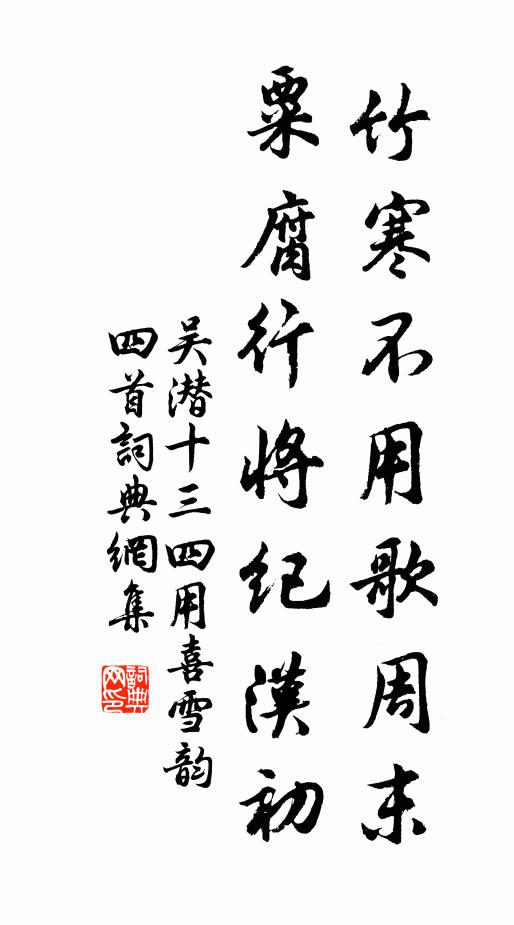 竹寒不用歌周末
粟腐行将纪漢初
吴潜十三四用喜雪韵
四首詞典網集
詞典网印